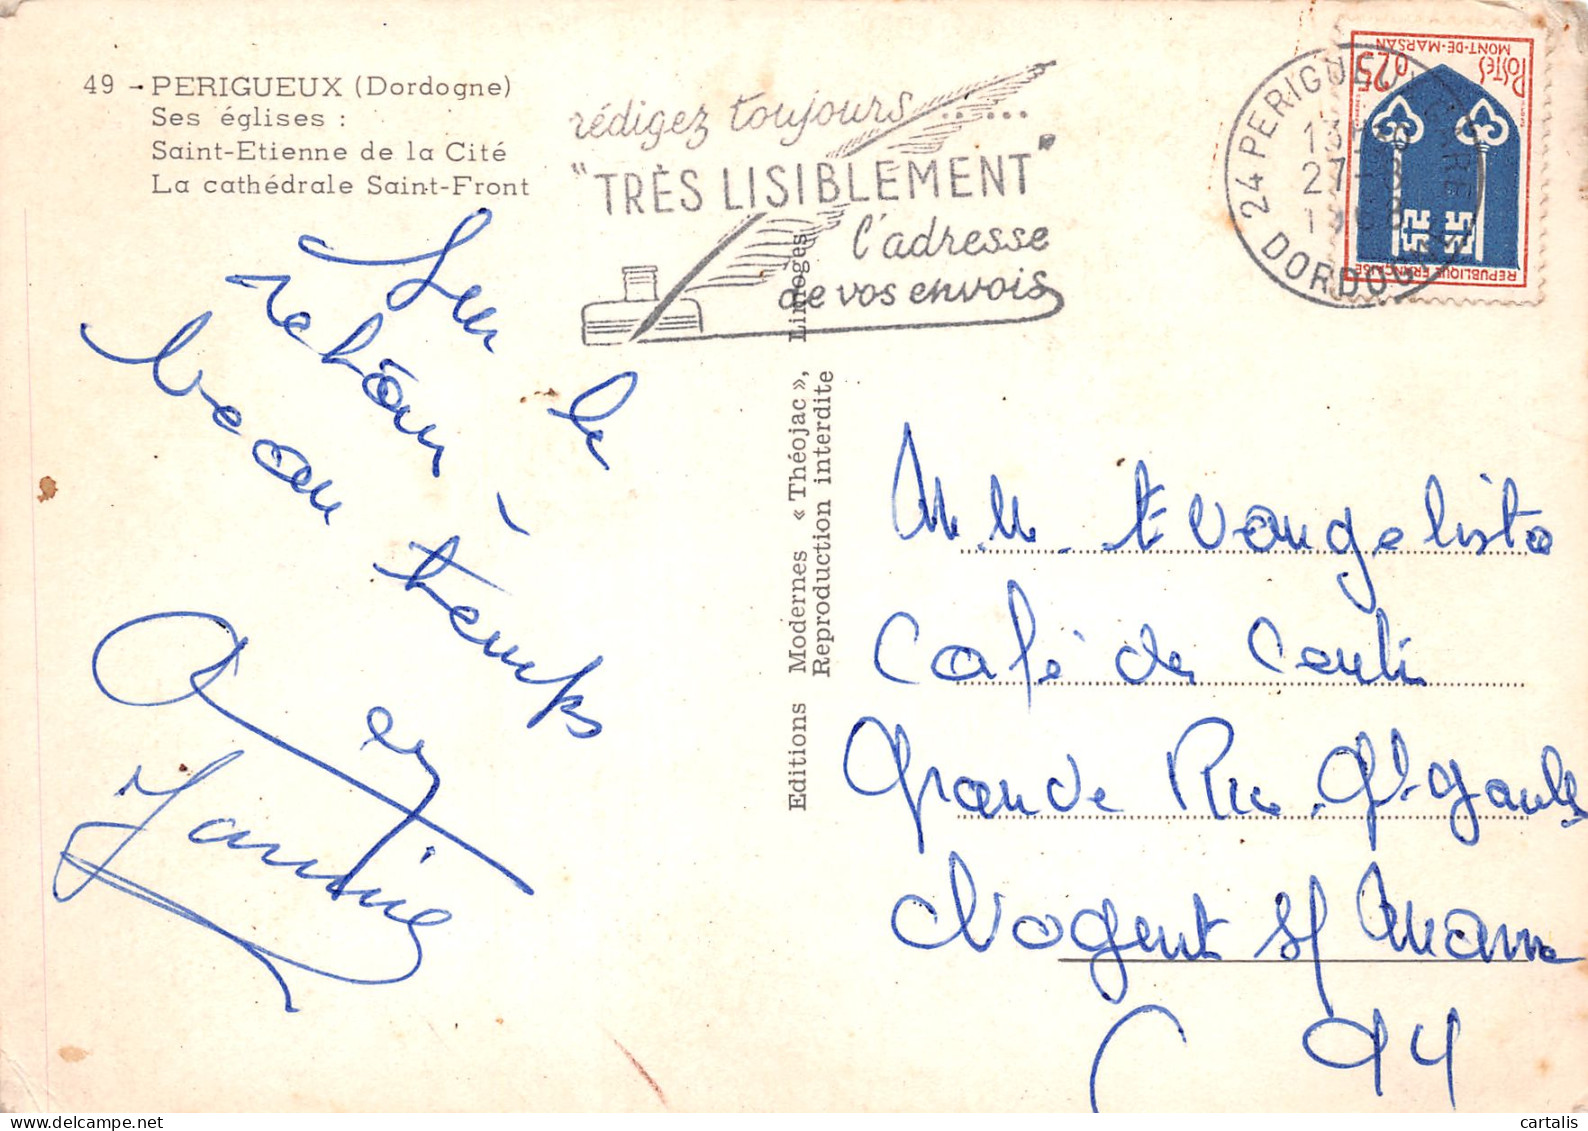 49 - PERIGUEUX (Dordogne)
Ses églises :
Saint-Etienne de la Cité
La cathédrale Saint-Front
rédigez toujours......
"TRÈS LISIBLEMENT"
l'adresse
de vos envois
24 PERIGUEUX GARE
DORDOGNE
13H
27-3
POSTES
0,25
MONT-DE-MARSAN
REPUBLIQUE FRANÇAISE
Sur le
retour
beau temps
et
Janine
Editions Modernes « Théojac », Limoges
Reproduction interdite
M. M. Evangelista
Café du Centre
Grande Rue
Nogent s/ Marne
94
cartalis